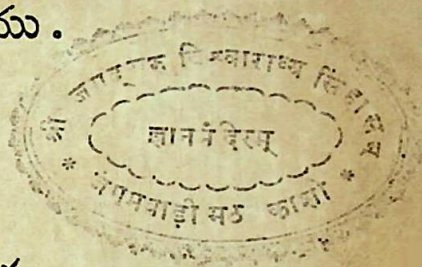 ము.
श्री जगद्गुरु विश्वाराध्य सिंहासन
ज्ञानमंदिरम्
* जंगमवाड़ी मठ काशी *